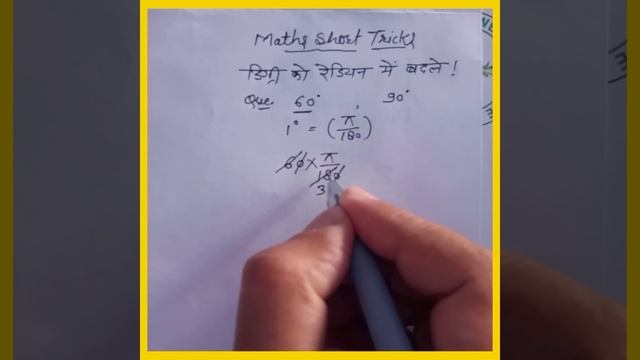 Maths Short Tricks
डिग्री को रेडियन में बदले !
Que. 60° , 90°
1° = (π/180)
60 × π/180
3